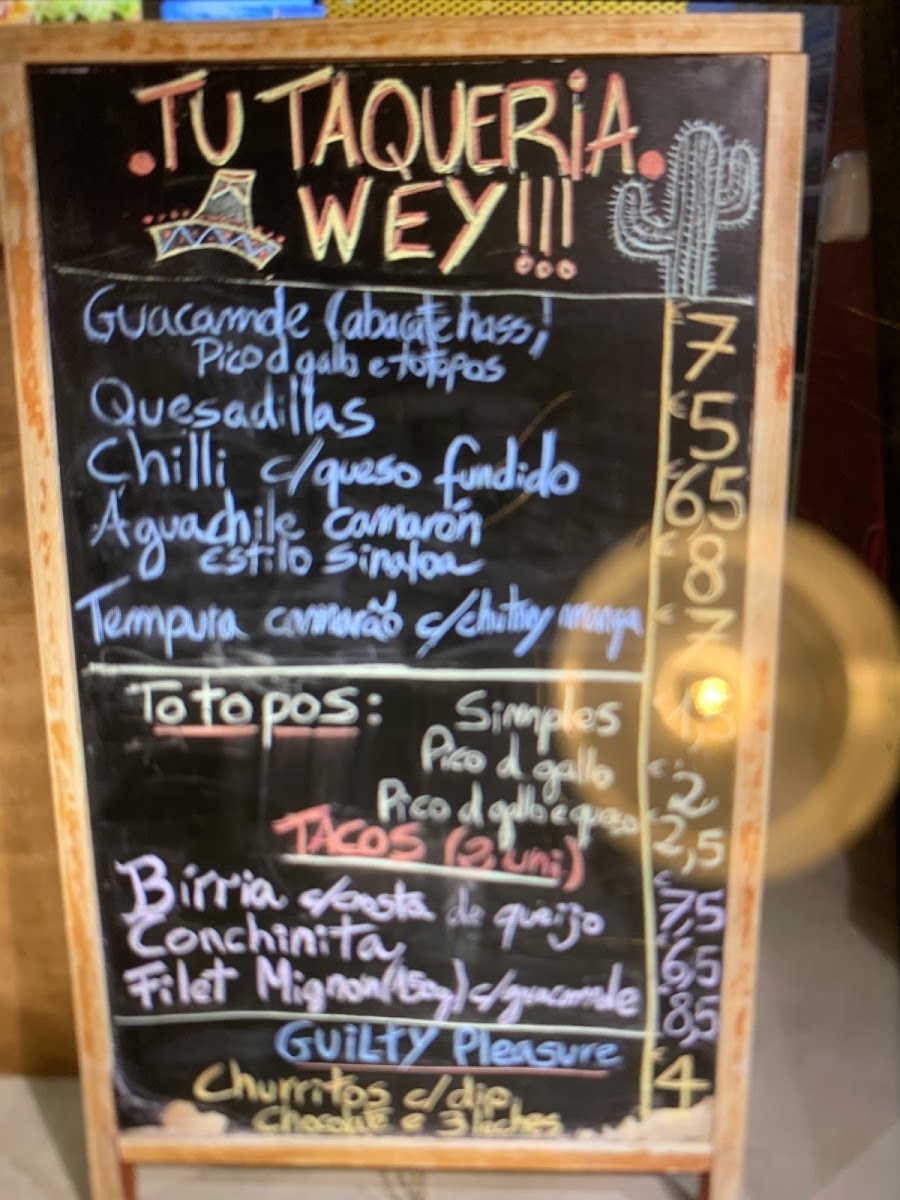 .TU TAQUERiA.
WEY!!!
Guacamole (abacate hass) € 7
Pico d gallo e totopos
Quesadillas € 5
Chilli c/queso fundido € 6,5
Aguachile camarón € 8
estilo Sinaloa
Tempura camarão c/chutney manga € 7
Totopos: Simples 1,5
Pico d gallo € 2
Pico d gallo e queso € 2,5
TACOS (2 uni)
Birria c/costa de queijo € 7,5
Conchinita € 6,5
Filet Mignon (150g) c/guacamole € 8,5
GUiLTY Pleasure
Churritos c/dip € 4
Chocolate e 3 leches